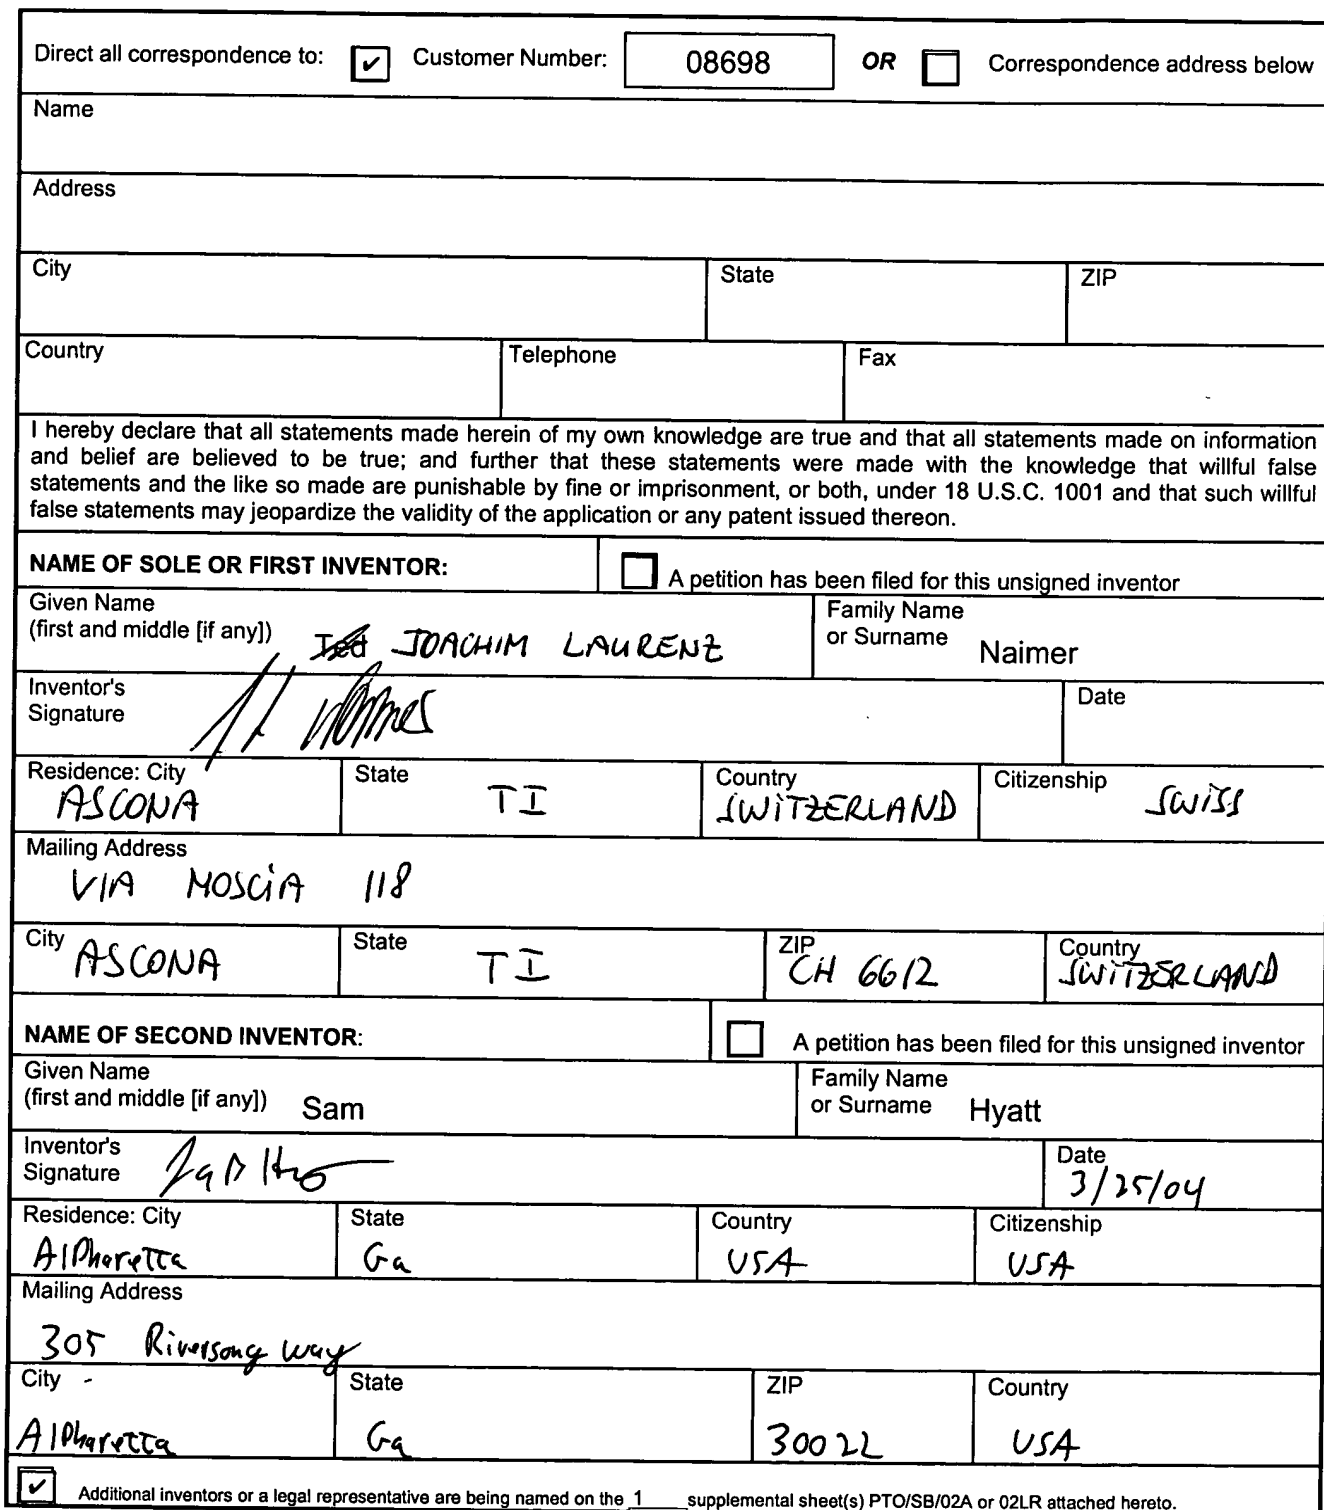 Direct all correspondence to: ✔ Customer Number: 08698 OR Correspondence address below
Name
Address
City State ZIP
Country Telephone Fax
I hereby declare that all statements made herein of my own knowledge are true and that all statements made on information
and belief are believed to be true; and further that these statements were made with the knowledge that willful false
statements and the like so made are punishable by fine or imprisonment, or both, under 18 U.S.C. 1001 and that such willful
false statements may jeopardize the validity of the application or any patent issued thereon.
NAME OF SOLE OR FIRST INVENTOR: A petition has been filed for this unsigned inventor
Given Name
(first and middle [if any]) JOACHIM LAURENZ
Family Name
or Surname Naimer
Inventor's
Signature
Date
Residence: City State Country Citizenship
ASCONA TI SWITZERLAND SWISS
Mailing Address
VIA MOSCIA 118
City State ZIP Country
ASCONA TI CH 6612 SWITZERLAND
NAME OF SECOND INVENTOR: A petition has been filed for this unsigned inventor
Given Name
(first and middle [if any]) Sam
Family Name
or Surname Hyatt
Inventor's
Signature
Date
3/25/04
Residence: City State Country Citizenship
AlPharetta Ga USA USA
Mailing Address
305 Riversong way
City State ZIP Country
AlPharetta Ga 30022 USA
✔ Additional inventors or a legal representative are being named on the 1 supplemental sheet(s) PTO/SB/02A or 02LR attached hereto.